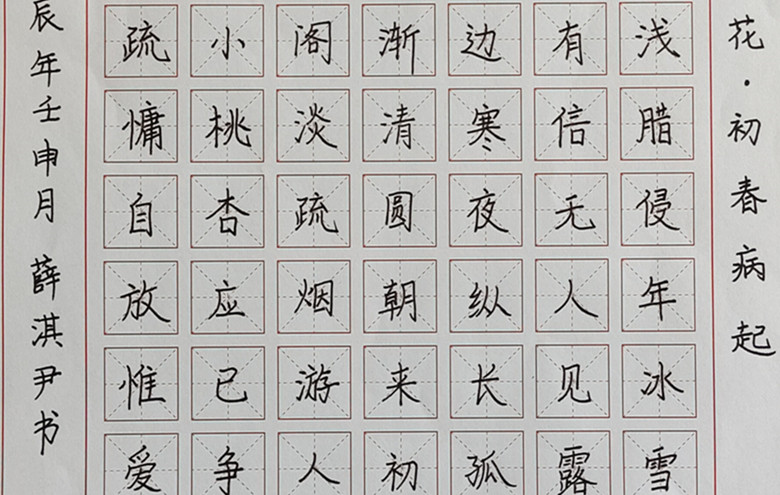 花·初春病起
浅腊侵年冰雪
有信无人见露
边寒夜纵长孤
渐清圆朝来初
阁淡疏烟游人
小桃杏应已争
疏慵自放惟爱
辰年壬申月 薛淇尹书